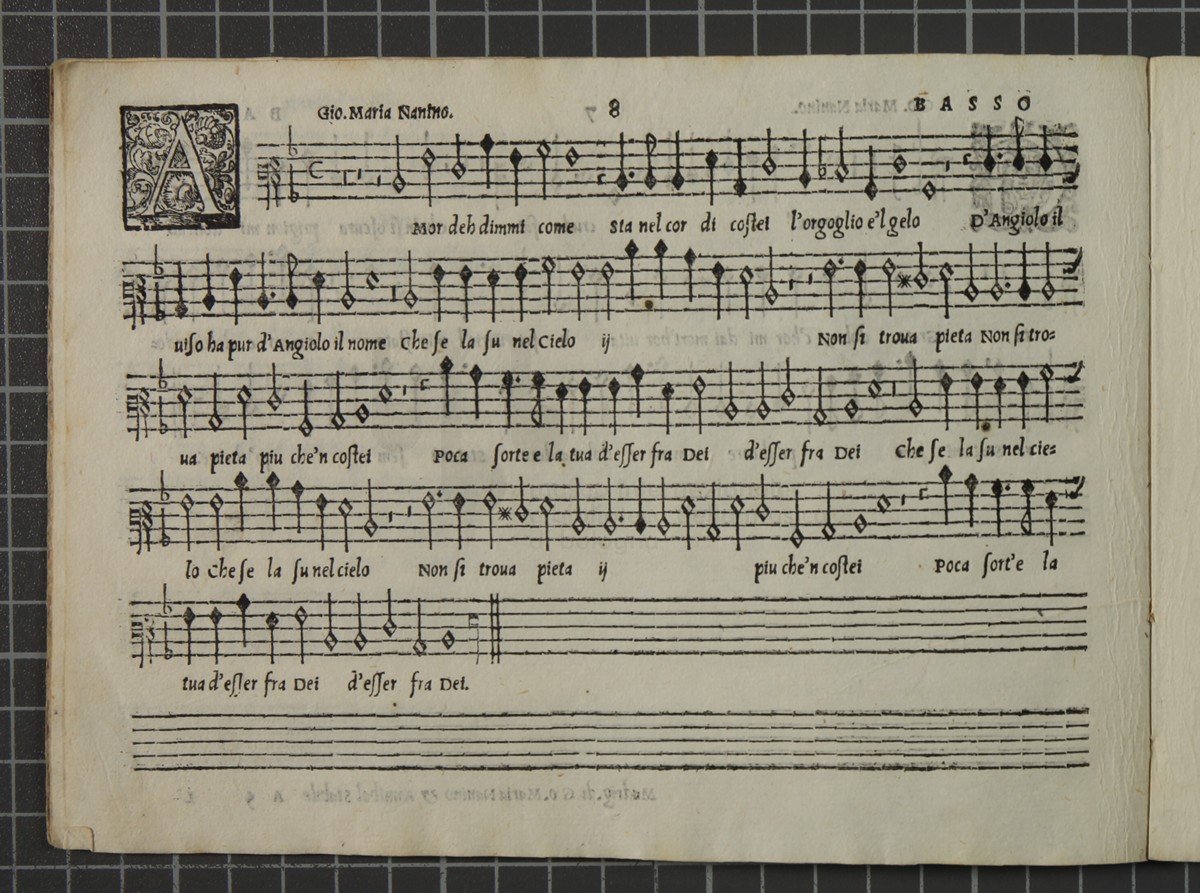 Gio. Maria Nanino. 8 BASSO
AMor deh dimmi come sta nel cor di costei l'orgoglio e'l gelo D'Angiolo il
uiso ha pur d'Angiolo il nome Che se la su nel Cielo ij Non si troua pieta Non si tro=
ua pieta piu che'n costei Poca sorte e la tua d'esser fra Dei d'esser fra Dei Che se la su nel cie=
lo Che se la su nel cielo Non si troua pieta ij piu che'n costei Poca sort'e la
tua d'esser fra Dei d'esser fra Dei.